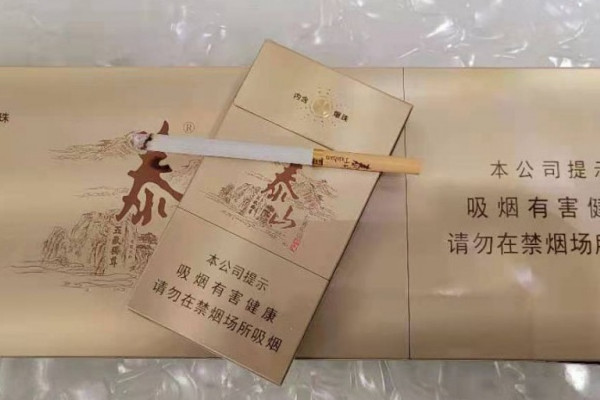 珠
泰
®
五嶽獨尊
内含 爆珠
泰山
Taishan
本公司提示
吸烟有害健康
请勿在禁烟场所吸烟
本公司提示
吸烟有害健
请勿在禁烟场所